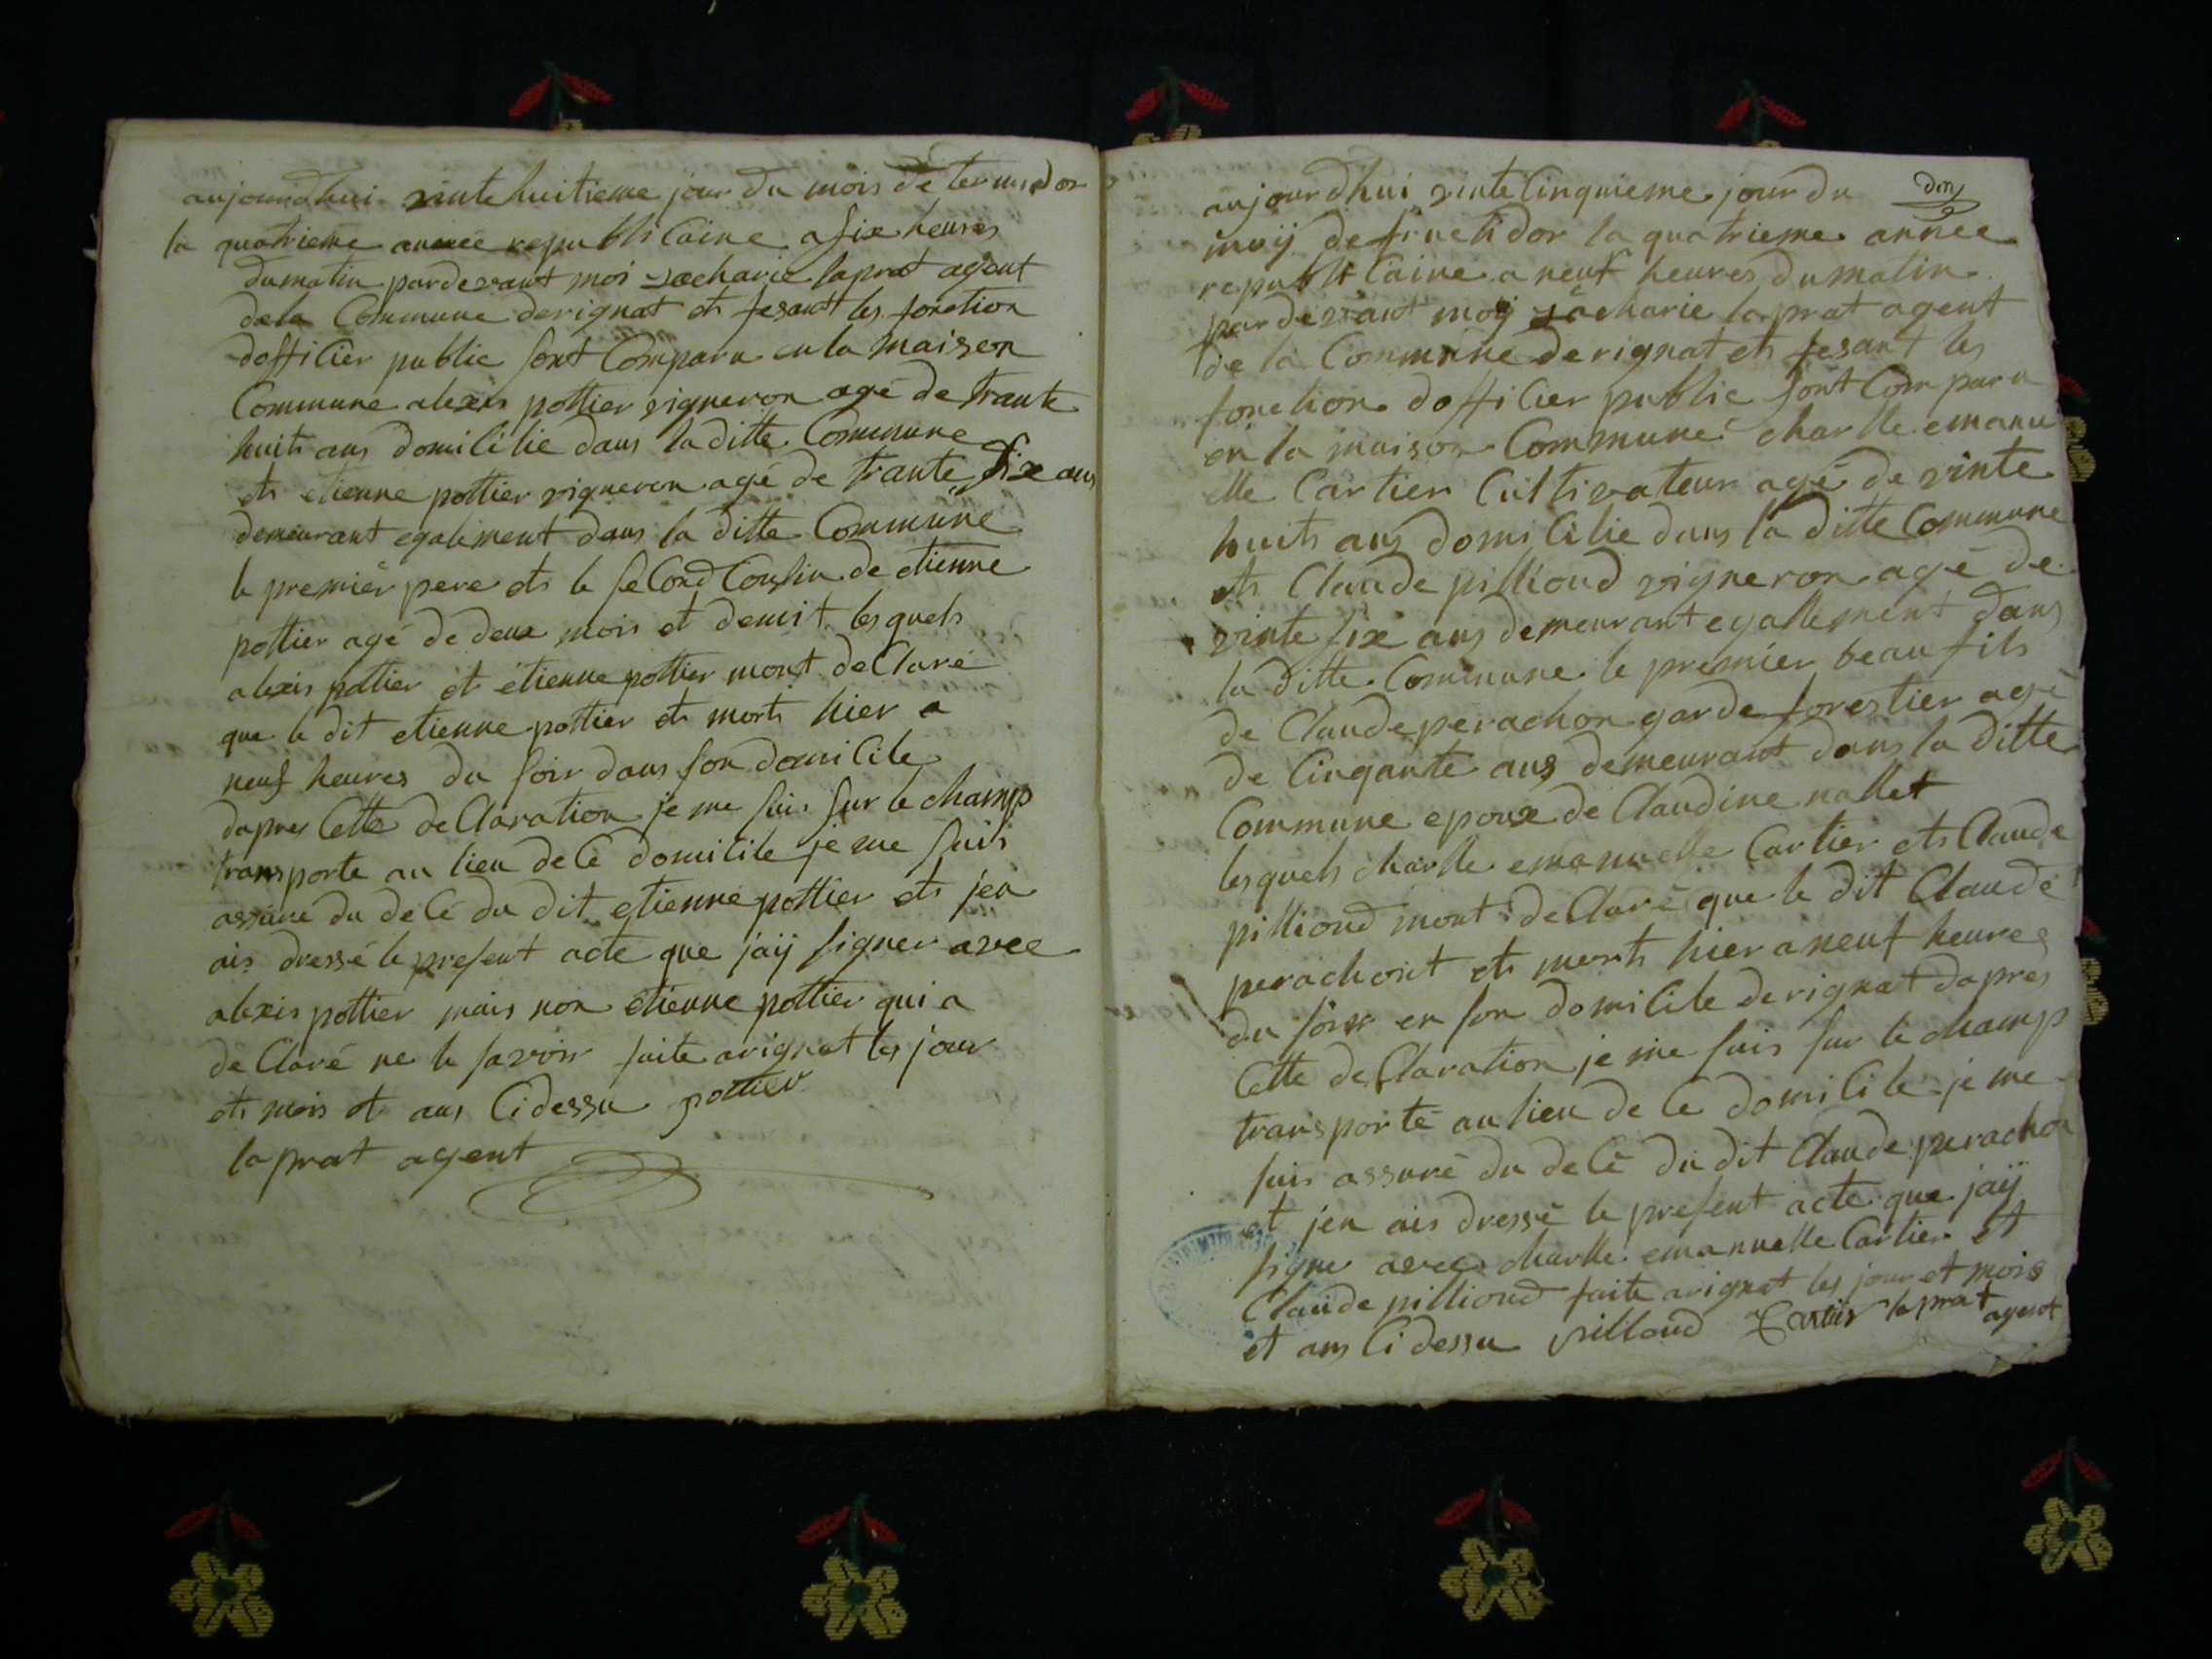 aujourdhui vinte huitieme jour du mois de termidor
la quatrieme année republicaine a six heures
du matin pardevant moi zacharie laprat agent
de la Commune derignat et fesant les fonction
dofficier public sont Comparu en la maison
Commune alexis pottier vigneron agé de trante
huits ans domicilie dans la ditte Commune
et etienne pottier vigneron agé de trante six ans
demeurant egalement dans la ditte Commune
le premier pere et le seCond Cousin de etienne
pottier agé de deux mois et demit lesquels
alexis pottier et étienne pottier mont deClaré
que le dit etienne pottier et morts hier a
neuf heures du soir dans son domiCile
dapres Cette deClaration je me suis sur le champs
transporte au lieu de Ce domicile je me suis
assure du deCé du dit etienne pottier et jen
ais dressé le present acte que jaÿ signer avec
alexis pottier mais non étienne pottier qui a
deClaré ne le savoir faite arignat les jour
et mois et ans Cidessu pottier
laprat agent
aujourdhui vinte Cinquieme jour du
moÿ de fructidor la quatrieme année
republiCaine a neuf heures du matin
pardevant moÿ zacharie laprat agent
de la Commune derignat et fesant les
fonction dofficier public sont Comparu
en la maison Commune charlle emanu
elle Cartier Cultivateur agé de vinte
huits ans domiCilie dans la ditte Commune
et Claude pilliond vigneron agé de
vinte six ans demeurant egallement dans
la ditte Commune le premier beau fils
de Claude perachon garde forestier agé
de Cinqante ans demeurant dans la ditte
Commune epoux de Claudine nallet
lesquels charlle emanuelle Cartier et Claude
pilliond mont deClaré que le dit Claude
perachont et morts hier a neuf heures
du soir en son domiCile derignat dapres
Cette deClaration je me suis sur le champ
transporté au lieu de Ce domiCile je me
suis assuré du deCé du dit Claude perachon
et jen ais dressé le present acte que jaÿ
signe avec charlle emanuelle Cartier et
Claude pilliond faite arignat les jour et mois
et ans Cidessu pilloud Cartier laprat agent